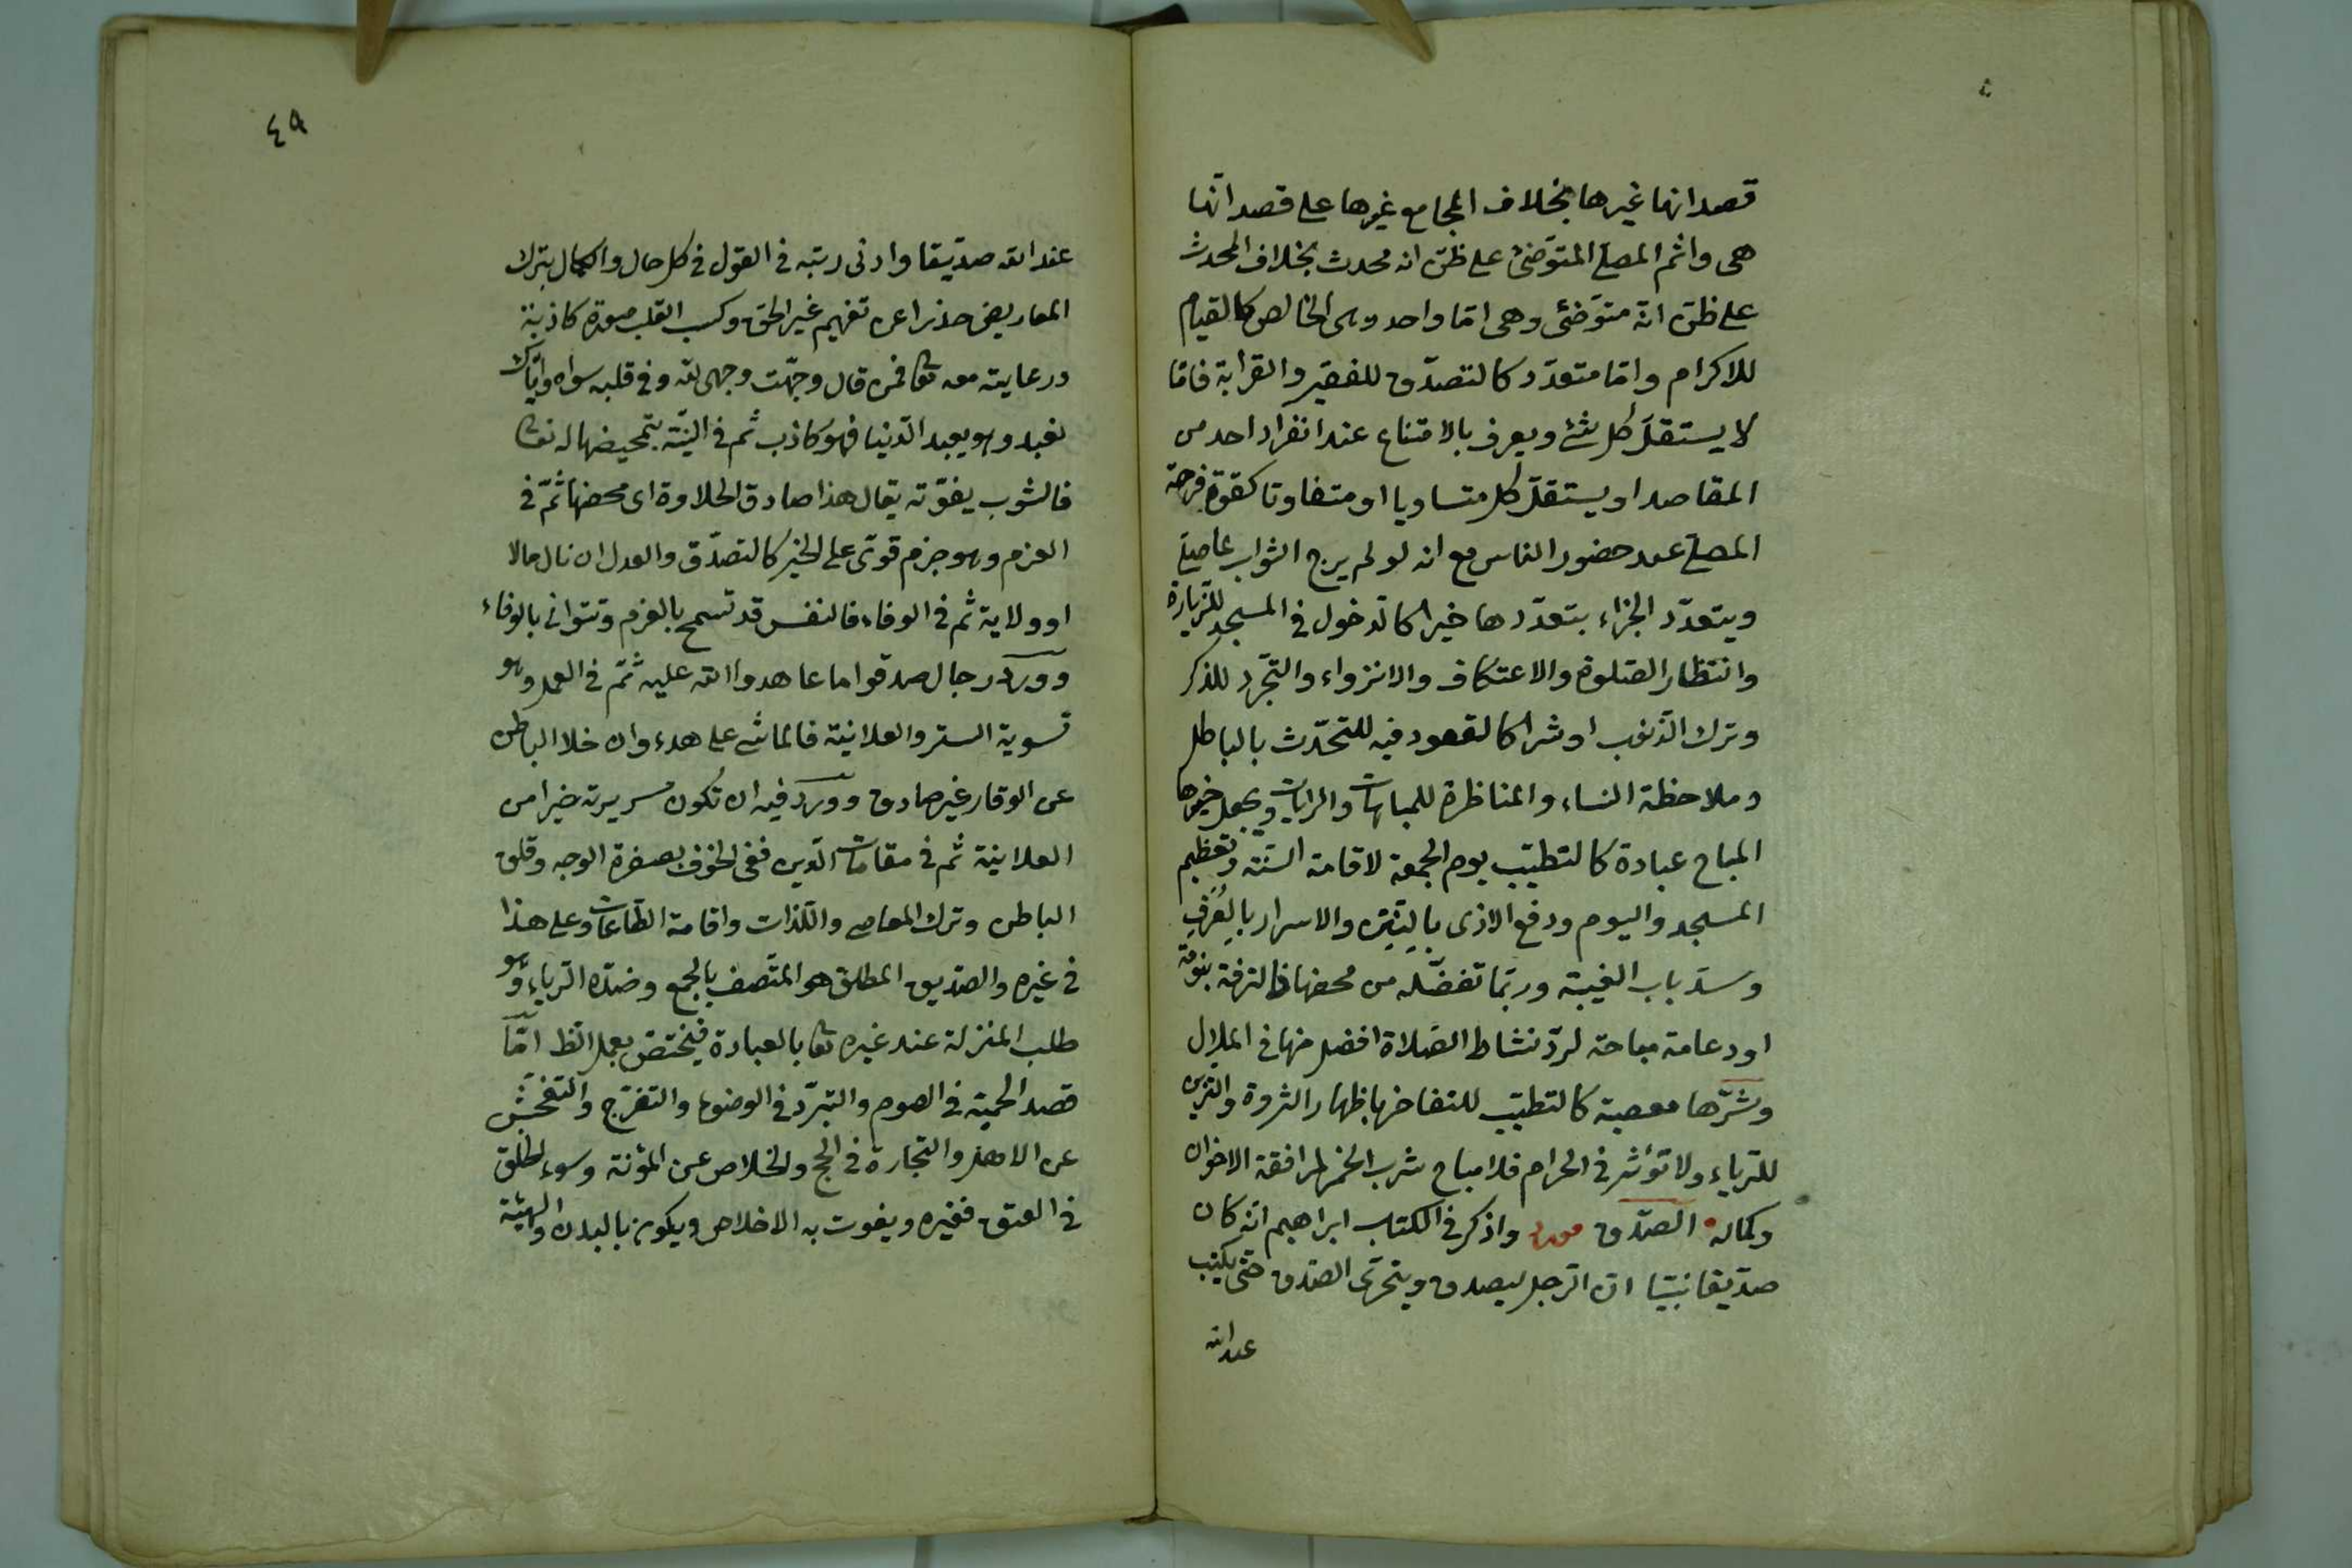 قصد انها غيرها بخلاف المجامع غيرها على قصد انّها
هى واثم المصلّ المتوضّئ على ظنّ انه محدث بخلاف المحدث
على ظنّ انّه متوضّئ وهى امّا واحد وهى الخالص كالقيام
للاكرام وامّا متعدّد كالتصدّق للفقير والقرابة فامّا
لا يستقلّ كل شئ ويعرف بالامتناع عند انفراد احد من
المقاصد او يستقلّ كل متساويا او متفاوتا كقوة فرحة
المصلّ عند حضور الناس مع انه لو لم يرج الثواب ما صلّى
ويتعدّد الجزاء بتعدّدها خيرا كالدخول في المسجد للزيارة
وانتظار الصّلوة والاعتكاف والانزواء والتجرّد للذكر
وترك الذّنوب او شرا كالقعود فيه للتحدّث بالباطل
وملاحظة النساء والمناظرة للمباهات والمرايات ويجعل خيرها
المباح عبادة كالتطيّب يوم الجمعة لاقامة السّنّة وتعظيم
المسجد واليوم ودفع الاذى بالنّتن والاسرار بالعُرف
وسدّ باب الغيبة وربّما تفضّله من محضها فالترفة بنومة
او دعابة مباحة لردّ نشاط الصّلاة افضل منها في الملال
وشرّها معصية كالتطيّب للتفاخر باظهار الثروة والتزين
للرّياء ولا تؤثر في الحرام فلا مباح شرب الخمر لمرافقة الاخوان
وكماله الصّدق مورد واذكر في الكتاب ابراهيم انّه كان
صدّيقا نبيّا انّ الرّجل ليصدق ويتحرّى الصّدق حتى يكتب
عند الله
٤٩
عند الله صدّيقا وادنى رتبه في القول في كل حال والكمال بترك
المعاريض حذرا عن تفهيم غير الحق وكسب القلب صورة كاذبة
ورعايته معه تعا فمن قال وجّهت وجهى لله وفي قلبه سواه وايّاك
نعبد وهو يعبد الدّنيا فهو كاذب ثم في النيّة بتمحيضها له تعا
فالشوب يفوّته يقال هذا صادق الحلاوة اى محضها ثمّ في
العزم وهو جزم قوىّ على الخير كالتصدّق والعدل ان نال مالا
او ولاية ثم في الوفاء فالنفس قد تسمح بالعزم وتتوانى بالوفاء
وورد رجال صدقوا ما عاهدوا الله عليه ثمّ في العمل وهو
تسوية السر والعلانية فالماشى على هدء وان خلا الباطن
عن الوقار غير صادق وورد فيه ان تكون سريرته خيرا من
العلانية ثم في مقامات الدّين ففى الخوف بصفرة الوجه وقلق
الباطن وترك المعاصى واللّذات واقامة الطّاعات وعلى هذا
في غيره والصدّيق المطلق هو المتّصف بالجمع وضدّه الرّياء وهو
طلب المنزلة عند غيره تعا بالعبادة فيختصّ بعمل الظ امّا
قصد الحمية في الصوم والتبرّد في الوضوء والتفرّج والتفحّش
عن الاهل والتجارة في الحج والخلاص عن المؤنة وسوء الخلق
في العتق فغيره ويفوت به الاخلاص ويكون بالبدن والهيئة